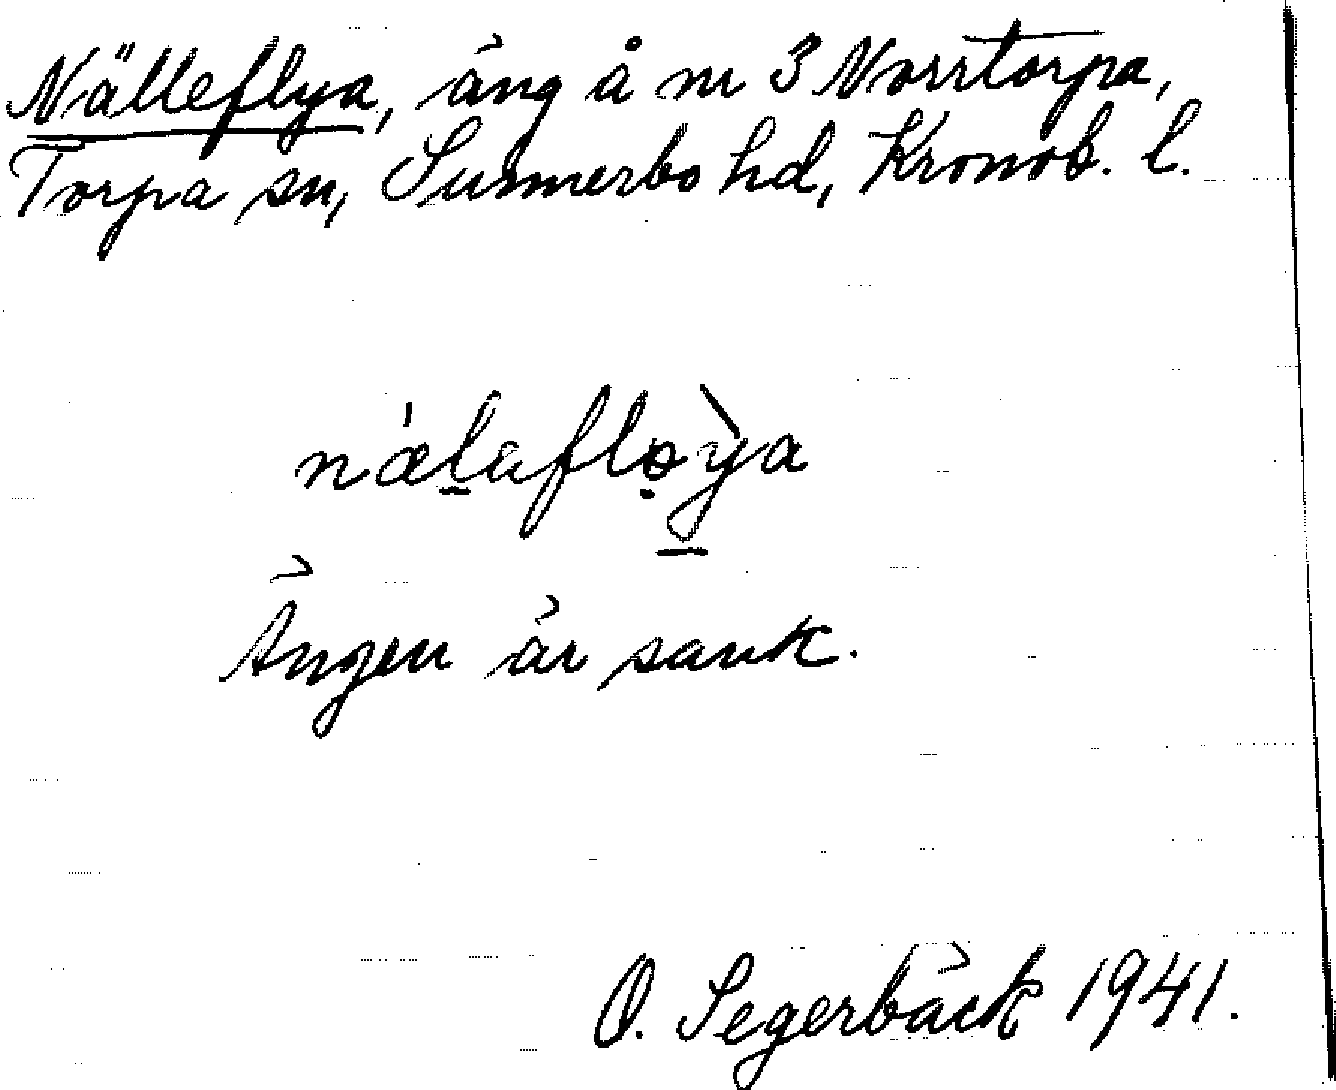 Nälleflya, äng å nr 3 Norrtorpa,
Torpa sn, Sunnerbo hd, Kronob. l.
näl̠aflọ̀y̠a
Ängen är sank.
O. Segerbäck 1941.